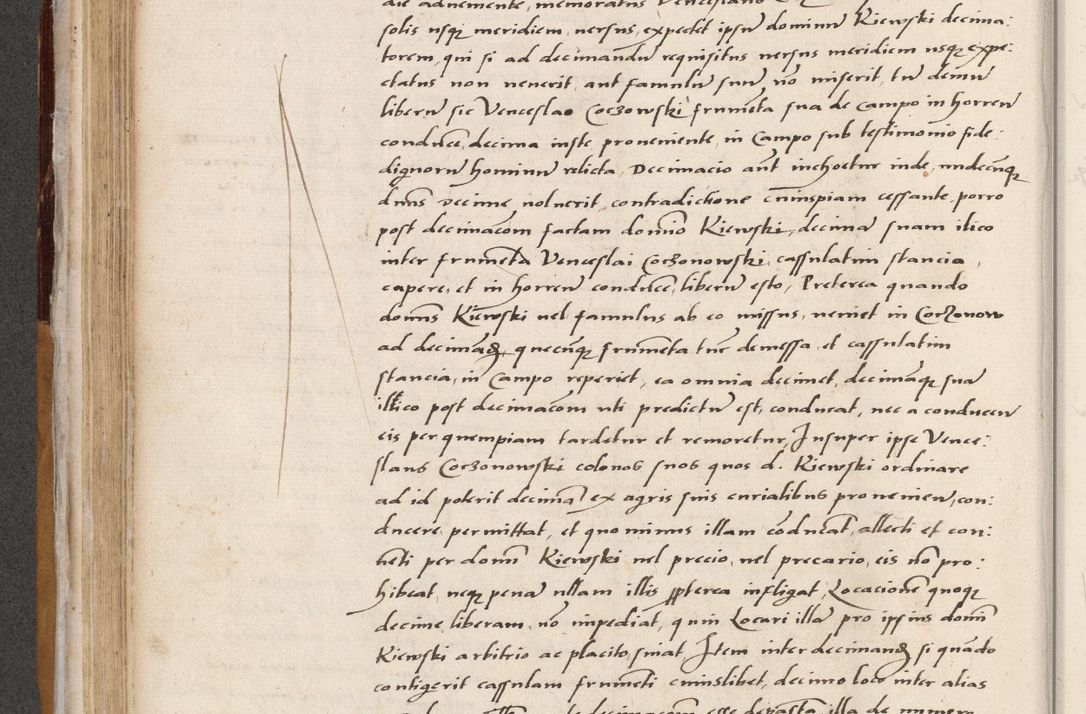 die advenerite, memoratus Venceslaus
solis usq̨ meridiem, versus, expectet ipsũ dominũ Kiewski decima:
torem, qui si ad decimandũ requisitus versus meridiem usq̨ expe:
ctatus non venerit, aut famulũ suũ nõ miserit, tũ demũ
liberũ sit Venceslao Corzonowski frumẽta sua de campo in horreũ
conducẽ, decima iuste proveniente, in Campo sub testimonio fide:
dignorũ hominũ relicta, Decimacio aũt inchoetur inde, undecũq̨
dñus decime voluerit, contradictione cuiuspiam cessante, porro
post decimac̃om factam domiño Kiewski, decimã suam ilico
inter frumẽta Venceslai Corzonowski, cassulatim stancia,
capere, et in horreũ conducẽ, liberũ esto, Preterea quando
domñs Kiewski vel famulus ab eo missus, veniet in Corzonow
ad decimãd, quecũq̨ frumẽta tũc demessa, et cassulatim
stancia, in Campo reperiet, ea omnia decimet, decimãq̨ suã
illico post decimac̃om uti predictũ est, conducat, nec a conducen
eis per quempiam tardetur et remoretur, Insuper ipse Vence:
slaus Corzonowski colonos suos quos d. Kiewski ordinare
ad id poterit decimã ex agris suis curialibus provenien, con:
ducere permittat, et quominus illam cõducãt, allecti et con:
venti per domñ Kiewski vel precio, vel precario, eis nõ pro:
hibeat, neq̨ penã ullam illis ppterea infligat, Locacionẽ quoq̨
decime, liberam, nõ impediat, quin Locari illã pro ipsius domñi
Kiewski arbitrio ac placito, sinat Item inter decimand si quãdo
contigerit cassulam frumẽti cuiuslibet, decimo loco inter alias